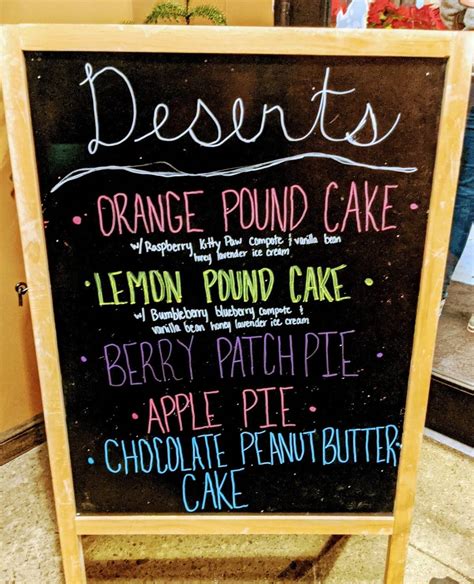 Deserts
• ORANGE POUND CAKE •
w/ Raspberry Kitty Paw compote & vanilla bean
honey lavender ice cream
• LEMON POUND CAKE •
w/ Bumbleberry blueberry compote &
vanilla bean honey lavender ice cream
• BERRY PATCH PIE •
• APPLE PIE •
• CHOCOLATE PEANUT BUTTER •
CAKE